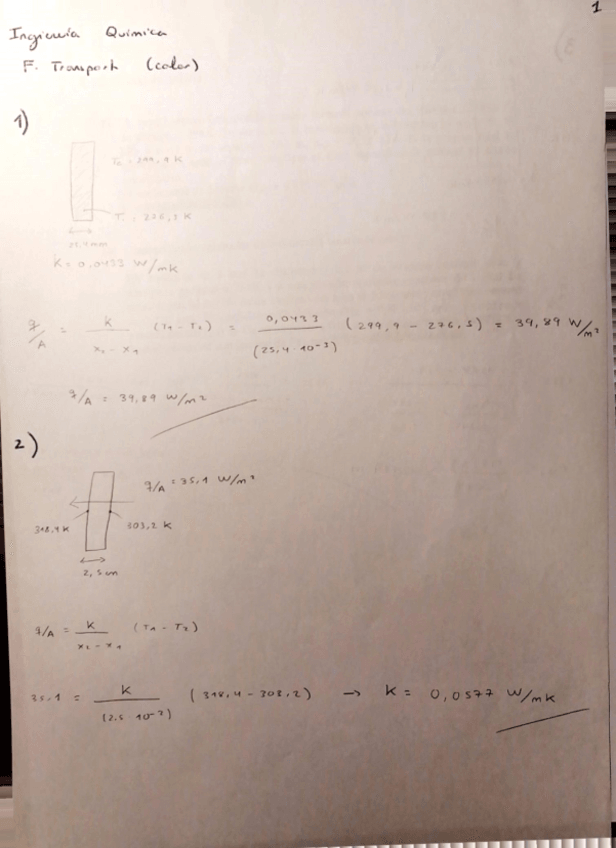 1
Ingieuría Quimica
F. Transport (calor)
1)
K = 0,0433 W/mk
q/A = k / (x₂ - x₁) (T₁ - T₂) = 0,0433 / (25,4 · 10⁻³) (299,9 - 276,5) = 39,89 W/m²
q/A = 39,89 W/m²
2)
q/A = 35,1 W/m²
318,4 K 303,2 K
2,5 cm
q/A = k / (x₂ - x₁) (T₁ - T₂)
35.1 = k / (2.5 · 10⁻²) (318,4 - 303,2) → k = 0,0577 W/mk